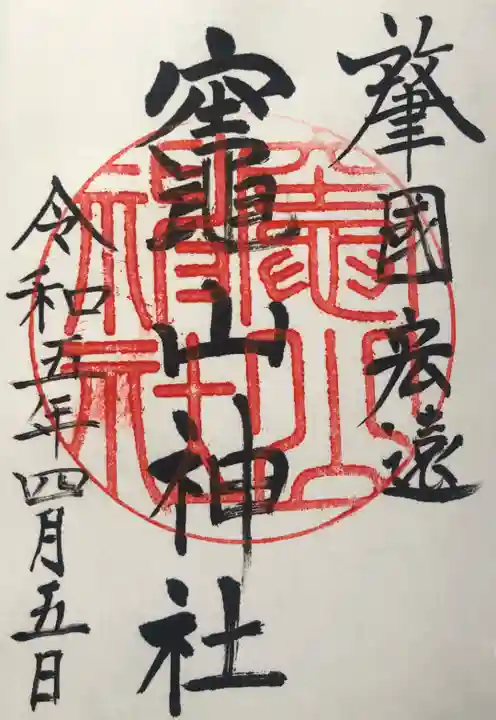 肇國宏遠
竈山神社
令和五年四月五日
竈山神社